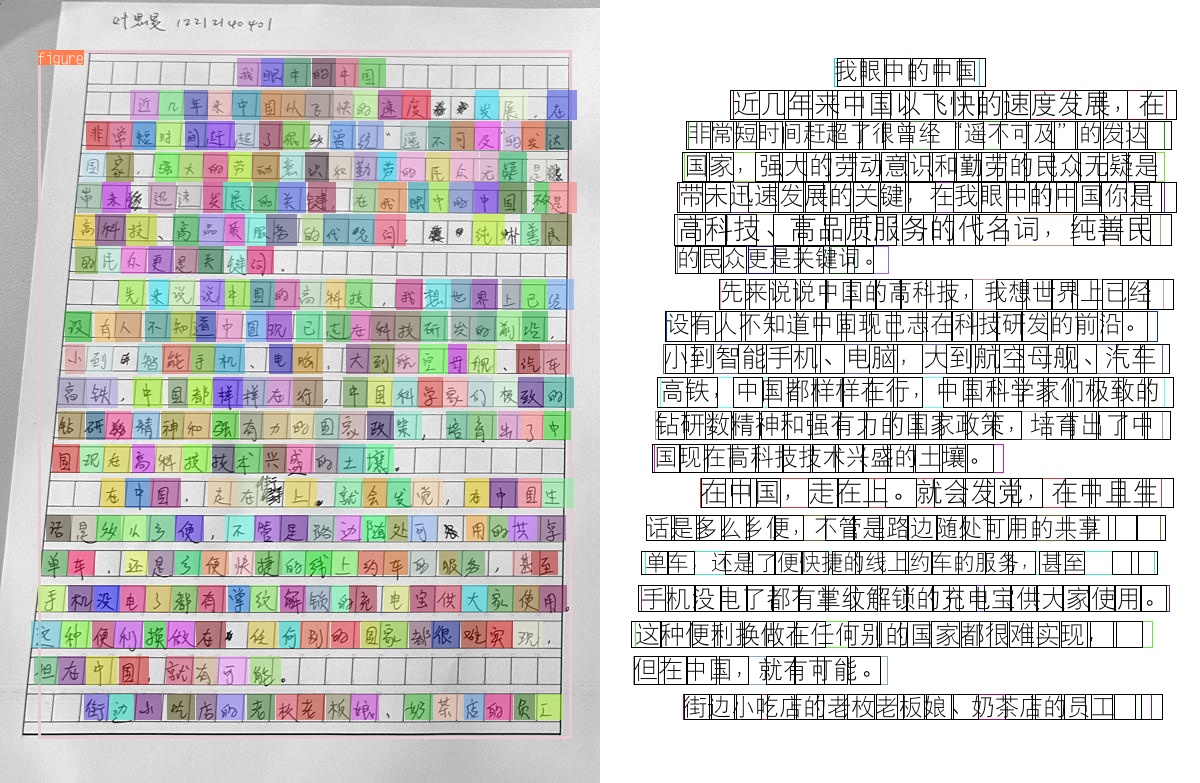 figure
我眼中的中国
近几年来中国以飞快的速度发展，在
非常短时间赶超了很多曾经“遥不可及”的发达
国家，强大的劳动意识和勤劳的民众无疑是
带来迅速发展的关键，在我眼中的中国
高科技、高品质服务的代名词，纯善民
的民众更是关键词。
先来说说中国的高科技，我想世界上已经
没有人不知道中国现已走在科技研发的前沿，
小到智能手机、电脑，大到航空母舰、汽车
高铁，中国都样样在行，中国科学家们极致的
钻研精神和强有力的国家政策，培育出了中
国现在高科技技术兴盛的土壤。
在中国，走在街上。就会发觉，在中国生
话是多么方便，不管是路边随处可用的共享
单车，还是方便快捷的线上约车的服务，甚至
手机没电了都有掌纹解锁的充电宝供大家使用。
这种便利换做在任何别的国家都很难实现，
但在中国，就有可能。
街边小吃店的老板老板娘、奶茶店的员工
我眼中的中国
近几年来中国以飞快的速度发展，在
非常短时间赶超了很曾经“遥不可及”的发达
国家，强大的劳动意识和勤劳的民众无疑是
带未迅速发展的关键，在我眼中的中国你是
高科技、高品质服务的代名词，纯善民
的民众更是关键词。
先来说说中国的高科技，我想世界上已经
设有人不知道中国现已志在科技研发的前沿。
小到智能手机、电脑，大到航空母舰、汽车
高铁，中国都样样在行，中国科学家们极致的
钻研数精神和强有力的国家政策，培育出了中
国现在高科技技术兴盛的土壤。
在中国，走在上。就会发党，在中且生
话是多么乡便，不管是路边随处可用的共享
单车，还是了便快捷的线上约车的服务，甚至
手机没电了都有掌纹解锁的充电宝供大家使用。
这种便利换做在任何别的国家都很难实现，
但在中国，就有可能。
街边小吃店的老枚老板娘、奶茶店的员工